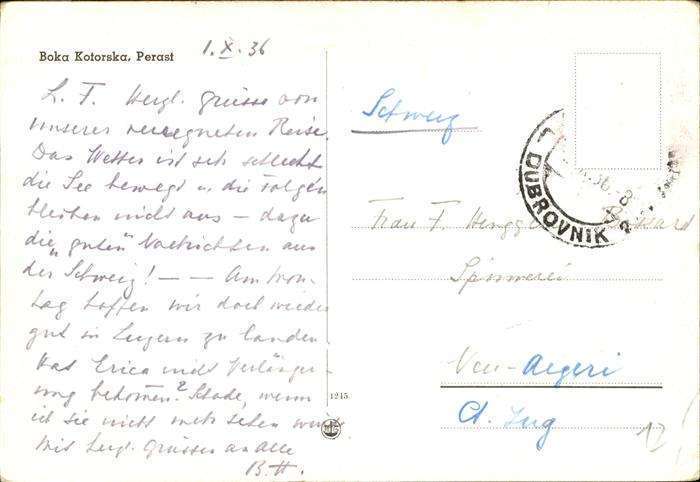 Boka Kotorska, Perast
1.X.36
L. F. Herzl. Grüsse von
unserer verregneten Reise.
Das Wetter ist sehr schlecht
die See bewegt u. die Folgen
bleiben nicht aus – dazu
die „guten" Nachrichten aus
der Schweiz! — — Am Mon-
tag hoffen wir doch wieder
gut in Luzern zu landen.
Hat Erica nicht Verlänger-
ung bekommen? Schade, wenn
ich sie nicht mehr sehen würde
Mit herzl. Grüssen an Alle
B.H.
1215
Schweiz
DUBROVNIK 2
Frau F.
Spinnerei
Neu-Aegeri
Ct. Zug
12